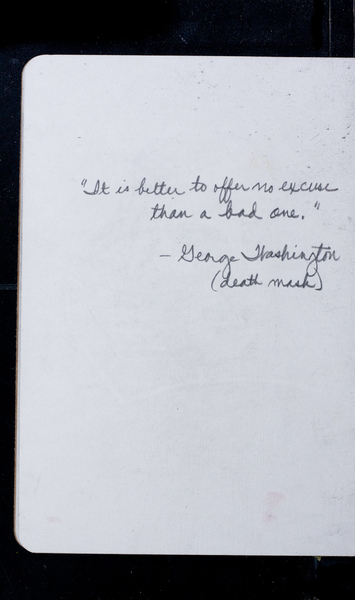 "It is better to offer no excuse
than a bad one."
- George Washington
(death mask)